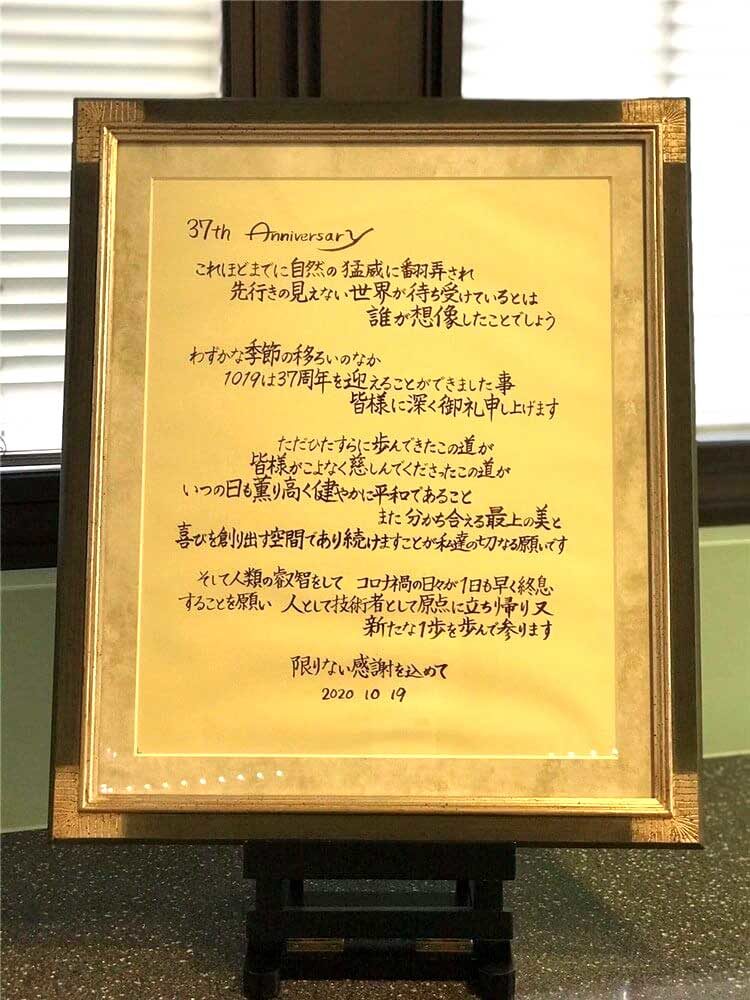 37th Anniversary
これほどまでに自然の猛威に翻弄され
先行きの見えない世界が待ち受けているとは
誰が想像したことでしょう
わずかな季節の移ろいのなか
1019は37周年を迎えることができました事
皆様に深く御礼申し上げます
ただひたすらに歩んできたこの道が
皆様がこよなく慈しんでくださったこの道が
いつの日も薫り高く健やかに平和であること
また分かち合える最上の美と
喜びを創り出す空間であり続けますことが私達の切なる願いです
そして人類の叡智をして コロナ禍の日々が1日も早く終息
することを願い 人として技術者として原点に立ち帰り又
新たな1歩を歩んで参ります
限りない感謝を込めて
2020 10 19